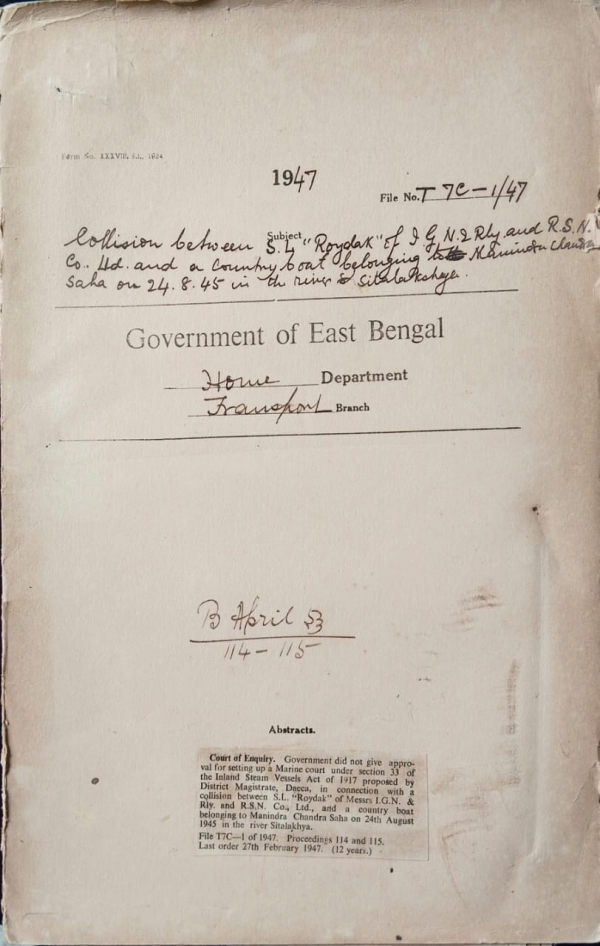 Form No. XXXVIII, S.L., 1924
1947
File No. T 7C-1/47
Subject
Collision between S.L. "Roydak" of I.G.N. & Rly and R.S.N.
Co. Ltd. and a country boat belonging to Manindra Chandra
Saha on 24.8.45 in the river Sitalakshya.
Government of East Bengal
Home Department
Transport Branch
B April 53
114-115
Abstracts.
Court of Enquiry. Government did not give appro-
val for setting up a Marine court under section 33 of
the Inland Steam Vessels Act of 1917 proposed by
District Magistrate, Dacca, in connection with a
collision between S.L. "Roydak" of Messrs I.G.N. &
Rly. and R.S.N. Co., Ltd., and a country boat
belonging to Manindra Chandra Saha on 24th August
1945 in the river Sitalakhya.
File T7C—1 of 1947. Proceedings 114 and 115.
Last order 27th February 1947. (12 years.)